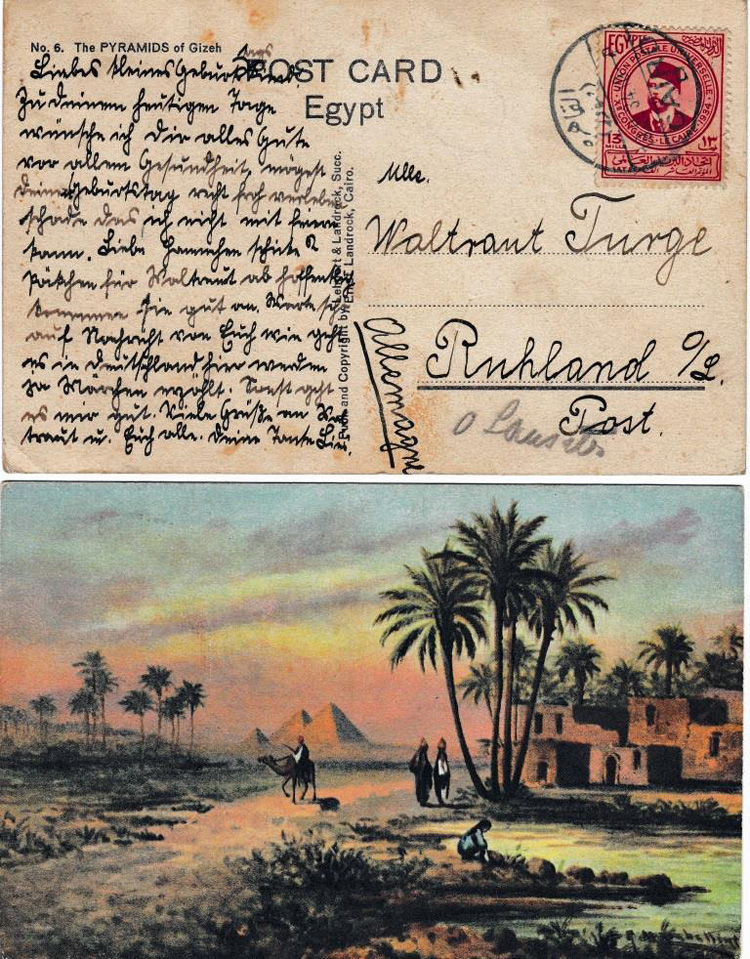 No. 6. The PYRAMIDS of Gizeh
POST CARD
Egypt
Liebes kleines Geburtstags
Zu deinem heutigen Tage
wünsche ich Dir alles Gute
vor allem Gesundheit, mögest
deinen Geburtstag recht froh verleben
schade das ich nicht mit feiern
kann. Liebe Hannchen schicke
Päkchen für Waltraut ab hoffentl
kommen Sie gut an. Warte
auf Nachricht von Euch wie geht
es in Deutschland hier werden
za Märchen erzählt. Sonst geht
es mir gut. Viele Grüße an
traut u. Euch alle. Deine Tante
Lehnert & Landrock, Succ.
and Copyright by Ernst Landrock, Cairo.
EGYPTE
UNION POSTALE UNIVERSELLE
Xe CONGRES · LE CAIRE 1934
13
١٣
اتحاد البريد العالمى
المؤتمر العاشر
Mlle.
Waltraut Turge
Ruhland O/L.
Post.
Allemagne